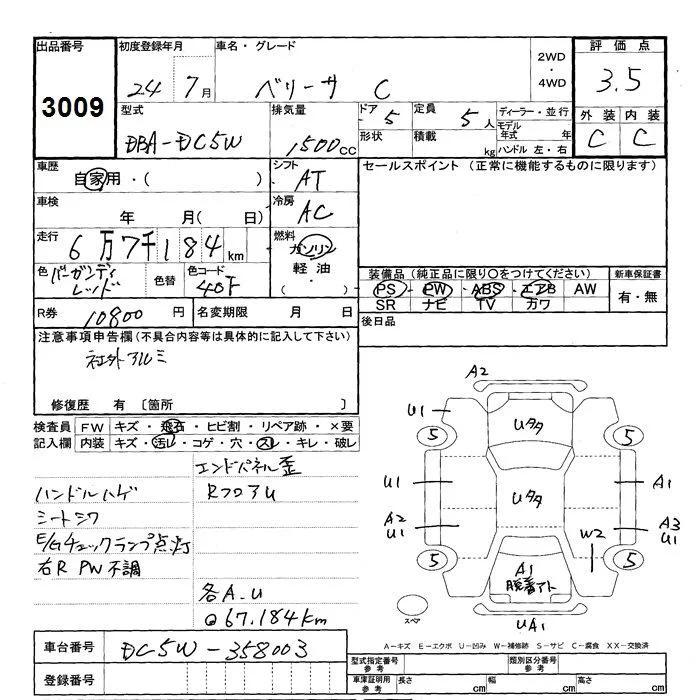 出品番号
3009
初度登録年月
24年 7月
車名・グレード
ベリーサ C
2WD
・
4WD
評価点
3.5
型式
DBA-DC5W
排気量
1500cc
ドア・ 5
形状
定員 5人
積載 kg
ディーラー・並行
モデル年式 年
ハンドル 左・右
外装 内装
C C
車歴
自家用・( )
シフト
AT
セールスポイント (正常に機能するものに限ります)
車検
年 月( 日)
冷房
AC
走行
6万7千184km
燃料
ガソリン
軽油
・( )
色 バーガンディレッド
色替
色コード
40F
装備品(純正品に限り○をつけてください)
PS PW ABS エアB AW
SR ナビ TV カワ
新車保証書
有・無
R券 10800円
名変期限 月 日
後日品
注意事項申告欄(不具合内容等は具体的に記入して下さい)
社外アルミ
修復歴 有 〔箇所 〕
検査員記入欄
FW キズ・飛石・ヒビ割・リペア跡・×要
内装 キズ・汚レ・コゲ・穴・スレ・キレ・破レ
エンドパネル歪
ハンドルハゲ
RフロアU
シートシワ
E/Gチェックランプ点灯
右R PW不調
各A.U
67.184km
A2
U1
Uタタ
5 5
U1 Uタタ A1
A2 U1
A3 U1
W2
5 5
A1
脱着アト
スペア
UA1
車台番号
DC5W-358003
登録番号
A-キズ E-エクボ U-凹み W-補修跡 S-サビ C-腐食 XX-交換済
型式指定番号 参考
類別区分番号 参考
車庫証明用 参考
長さ cm
幅 cm
高さ cm